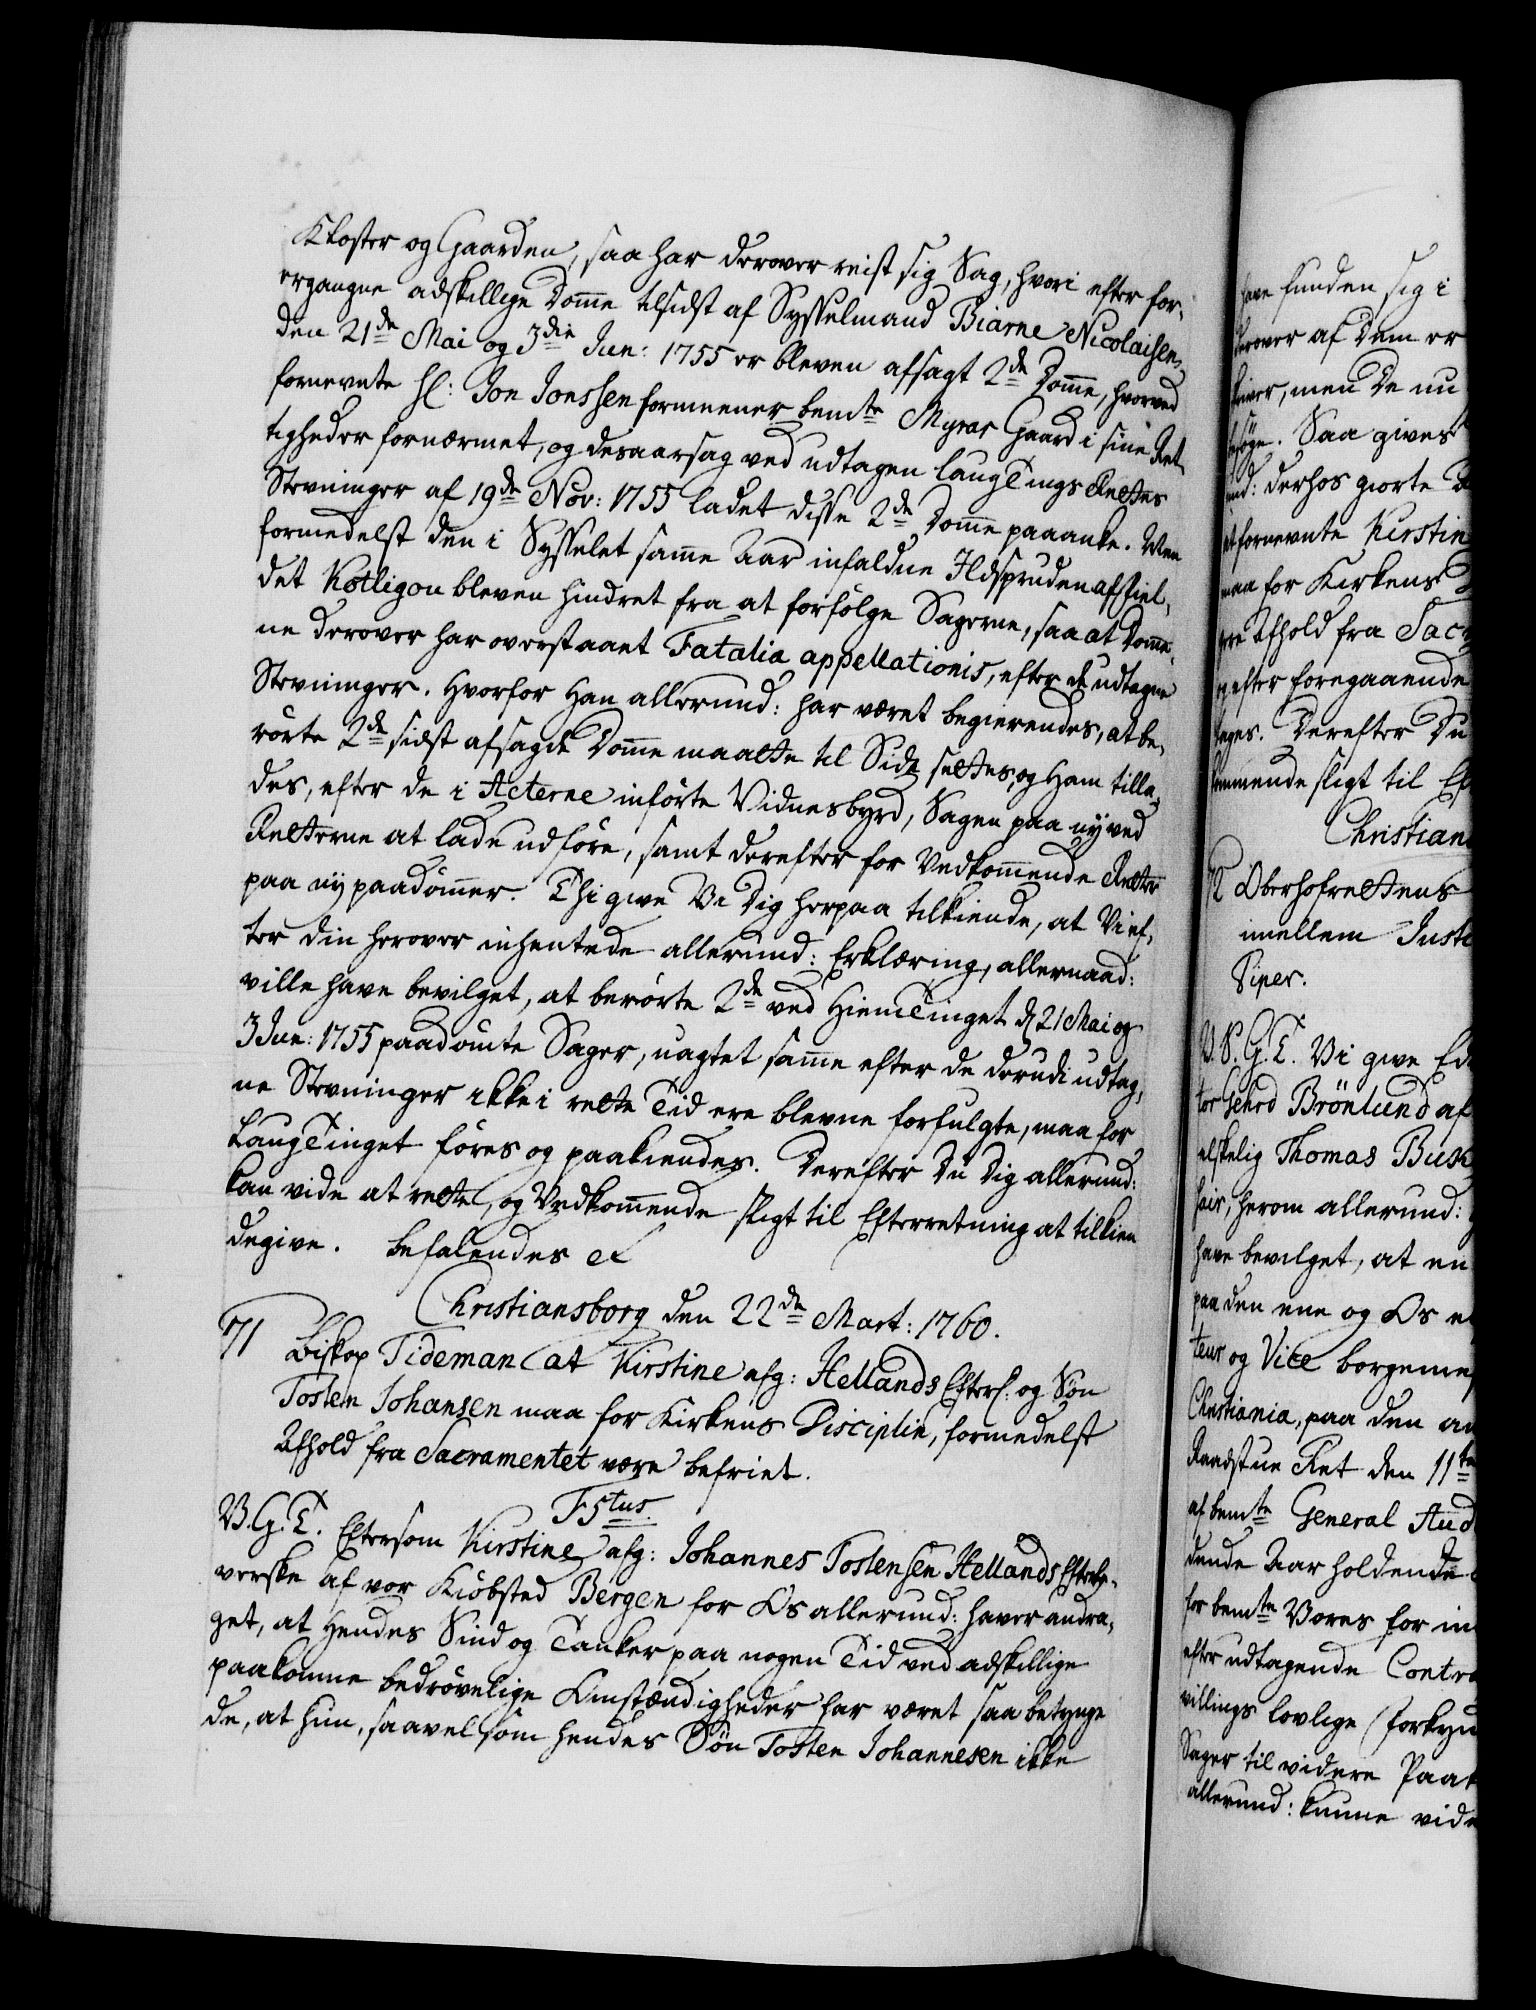 Kloster og Gaarden, saa har derover reist sig Sag, hvori efter for-
ergangne adskillige Domme tilsidst af Sysselmand Biarne Nicolaisen
den 21de Mai og 3die Jun: 1755 er bleven afsagt 2de Domme, hvorved
fornevnte Hl: Jon Jonssen formeener bemte Myrar Gaard i sine Ret-
tigheder fornærmet, og desaarsag ved udtagen LaugTings Rettes
Stevninger af 19de Nov: 1755 ladet disse 2de Domme paaanke. Men
formedelst den i Sysselet samme Aar infaldne Ildspruden af Fiel-
det Kotligou bleven hindret fra at forfølge Sagerne, saa at Domme-
ne derover har overstaaet Fatalia appellationis, efter de udtagne
Stevninger. Hvorfor Han allerund: har været begierendes, at be-
rørte 2de sidst afsagde Domme maatte til Side settes, og Ham tilla-
des, efter de i Acterne inførte Vidnesbyrd, Sagen paa ny ved
Retterne at lade udføre, samt derefter for Vedkommende Retter
paa ny paadømmer. Thi give Vi Dig herpaa tilkiende, at Vi ef-
ter din herover inhentede allerund: Erklæring, allernaad:
ville have bevilget, at berørte 2de ved HiemTinget d 21 Mai og
3 Jun: 1755 paadømte Sager, uagtet samme efter de derudi udtag-
ne Stevninger ikke i rette Tid ere blevne forfulgte, maa for
LaugTinget føres og paakiendes. Derefter Du Dig allerund:
kan vide at rette, og Vedkommende sligt til Efterretning at tilkien
degive. Befalendes etc
Christiansborg den 22de Mart: 1760.
71 Biskop Tideman at Kirstine afg: Hellands Efterl: og Søn
Tosten Johansen maa for Kirkens Disciplin, formedelst
Afhold fra Sacramentet være befriet.
F5tus.
V. G. T. Eftersom Kirstine afg: Johannes Tostensen Hellands Efterle-
verske af vor Kiøbsted Bergen for Os allerund: haver andra-
get, at Hendes Sind og Tanker paa nogen Tid ved adskillige
paakomne bedrøvelige Omstændigheder har været saa betynge
de, at hun, saavelsom hendes Søn Tosten Johannesen ikke
have funden sig i
derover af Dem er
men De nu
Saa gives
derhos giorte
at fornevnte Kirstin
maa for Kirkens
Afhold fra Sac
efter foregaaende
tages. Derefter Du
kommende sligt til Ef
Christian
72 OberhofRettens
imellem Juste
Piper.
V. S. G. T. Vi give Ed
tor Gehrd Brönlund af
elskelig Thomas Bus
herom allerund:
have bevilget, at en
paa den ene og Os e
teur og Vice borgemes
Christiania, paa den an
Raadstue Ret den 11te
af bemte General Aud
dende Aar holdende
for bemte Vores for in
efter udtagende Contra
villings lovlige Forkyn
Sager til videre Paak
allerund: kunne vide